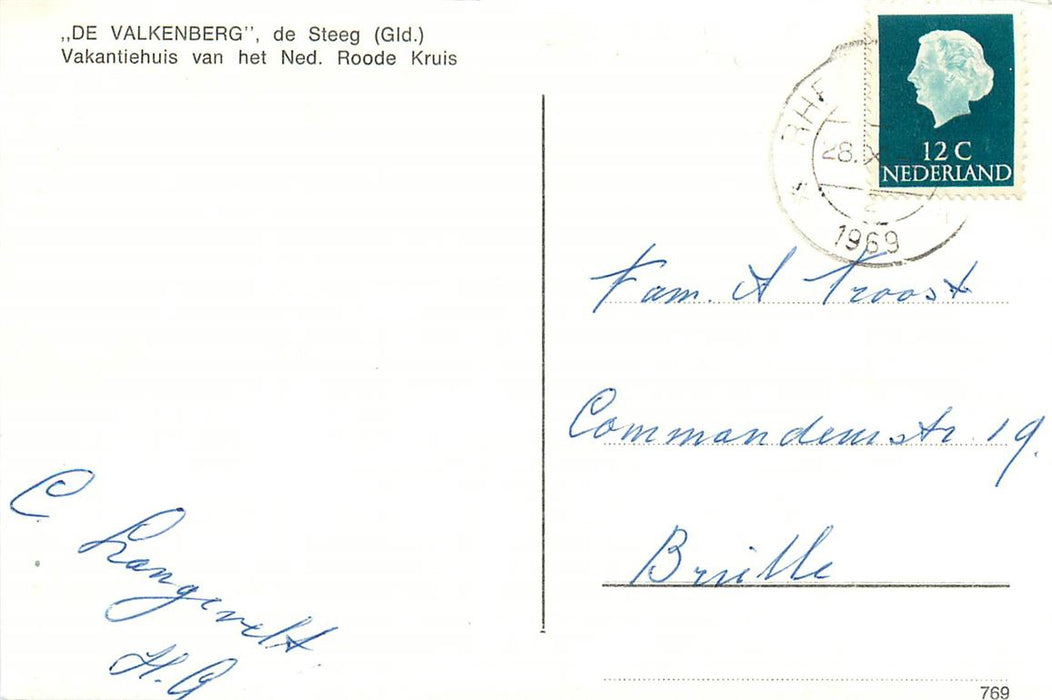 „DE VALKENBERG”, de Steeg (Gld.)
Vakantiehuis van het Ned. Roode Kruis
12 C
NEDERLAND
28.X
2
1969
Fam. A Troost
Commandeurstr. 19.
Brielle
C. Langevelt
H.A
769